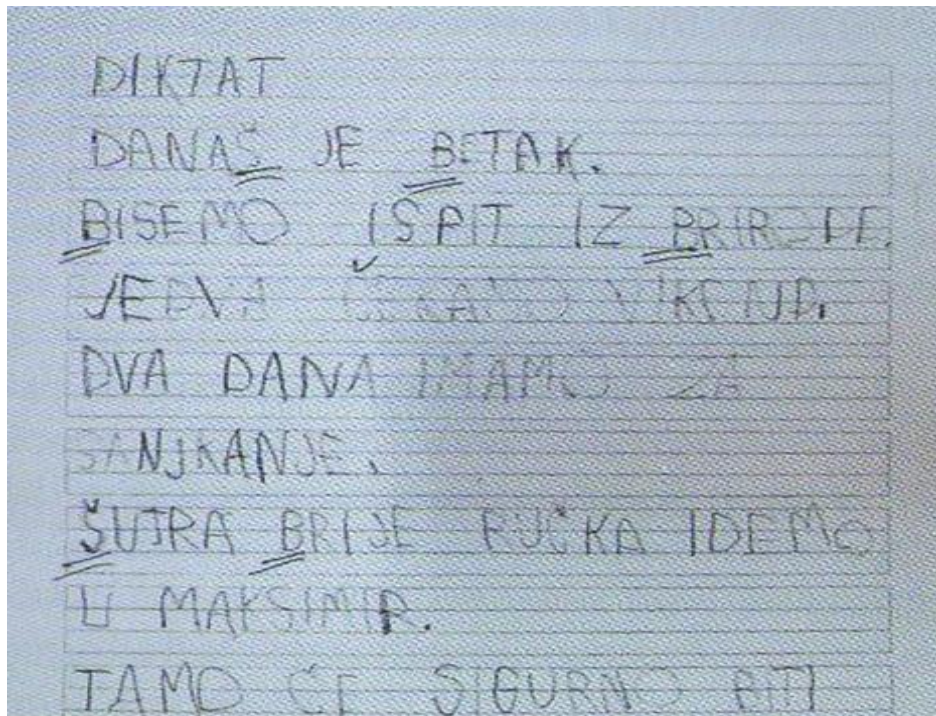 DIKTAT
DANAŠ JE BETAK.
BISEMO IŠPIT IZ PRIRODE.
JEDVA ČEKAMO VIKEND.
DVA DANA IMAMO ZA
SANJKANJE.
ŠUTRA BRIJE RUČKA IDEMO
U MAKSIMIR.
TAMO ĆE SIGURNO BITI